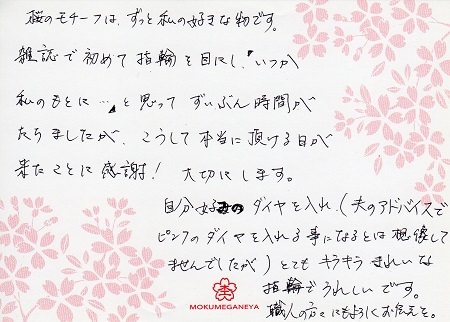 桜のモチーフは、ずっと私の好きな物です。
雑誌で初めて指輪を目にし、『いつか
私のもとに…』と思って ずいぶん時間が
たちましたが、こうして本当に頂ける日が
来たことに感謝! 大切にします。
自分好みの ダイヤを入れ、(夫のアドバイスで
ピンクのダイヤを入れる事になるとは想像して
ませんでしたが) とても キラキラ きれいな
指輪で うれしいです。
職人の方々にもよろしくお伝えを。
MOKUMEGANEYA